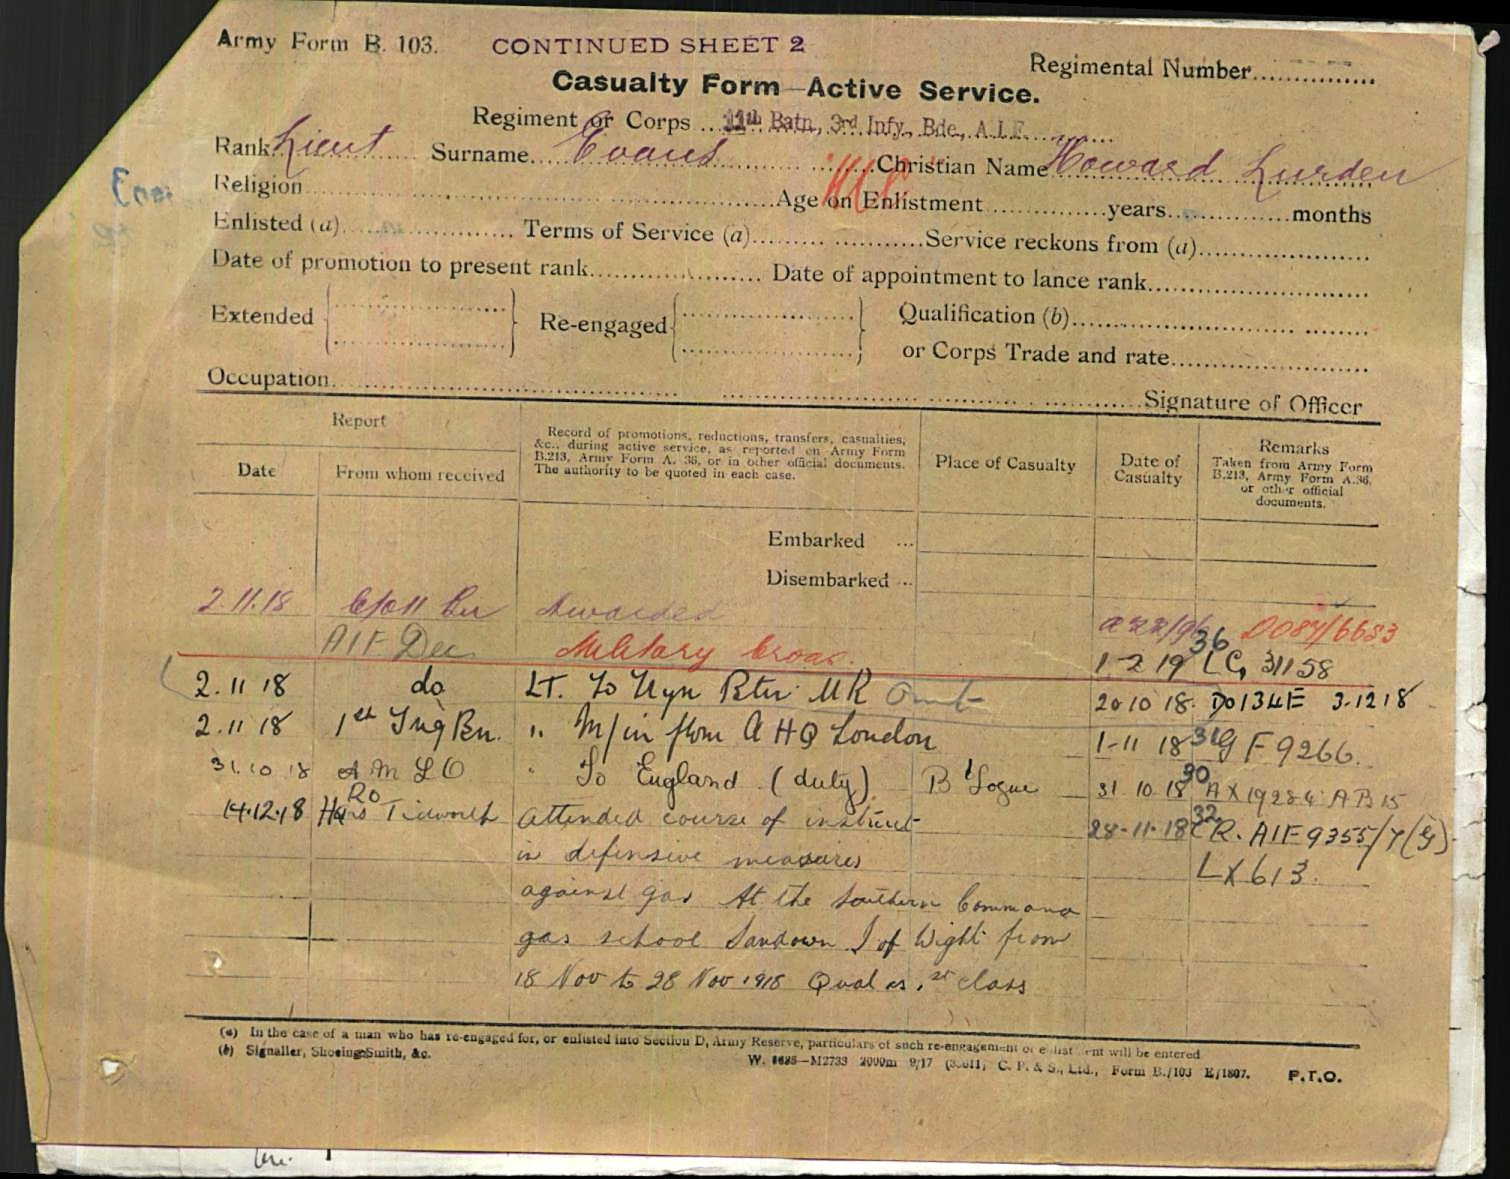 Army Form B. 103. CONTINUED SHEET 2
Regimental Number
Casualty Form—Active Service.
Regiment or Corps 11th Batn, 3rd Infy. Bde., A.I.F.
Rank Lieut Surname Evans "MC" Christian Name Howard Lurden
Religion Age on Enlistment years months
Enlisted (a) Terms of Service (a) Service reckons from (a)
Date of promotion to present rank Date of appointment to lance rank
Extended Re-engaged Qualification (b)
or Corps Trade and rate
Occupation
Signature of Officer
Report
Date
From whom received
Record of promotions, reductions, transfers, casualties,
&c., during active service, as reported on Army Form
B.213, Army Form A. 36, or in other official documents.
The authority to be quoted in each case.
Place of Casualty
Date of
Casualty
Remarks
Taken from Army Form
B.213, Army Form A.36,
or other official
documents.
Embarked
Disembarked
2.11.18 Awarded DO87/6683
AIF Military Cross. 1-2 19 36 LG 31158
2.11 18 do LT. To UK 20 10 18. DO134E 3.12 18
2.11 18 1st Trg Bn. " M/in from AHQ London 1-11 18 31 F 9266
31.10 18 A M L O " To England (duty) B'logne 31 10 18 30 AX19284 AB15
14.12.18 Hqrs Tidworth attended course of instruct 28-11-18 32 CR. AIF 9355/7(G)
in defensive measures LX613.
against gas At the Southern Command
gas school Sandown I of Wight from
18 Nov to 28 Nov 1918 Qual as 1st class
(a) In the case of a man who has re-engaged for, or enlisted into Section D, Army Reserve, particulars of such re-engagement or enlistment will be entered
(b) Signaller, Shoeing-Smith, &c.
M2733 2000m 9/17 C. P. & S., Ltd., Form B./103 E/1807. P.T.O.